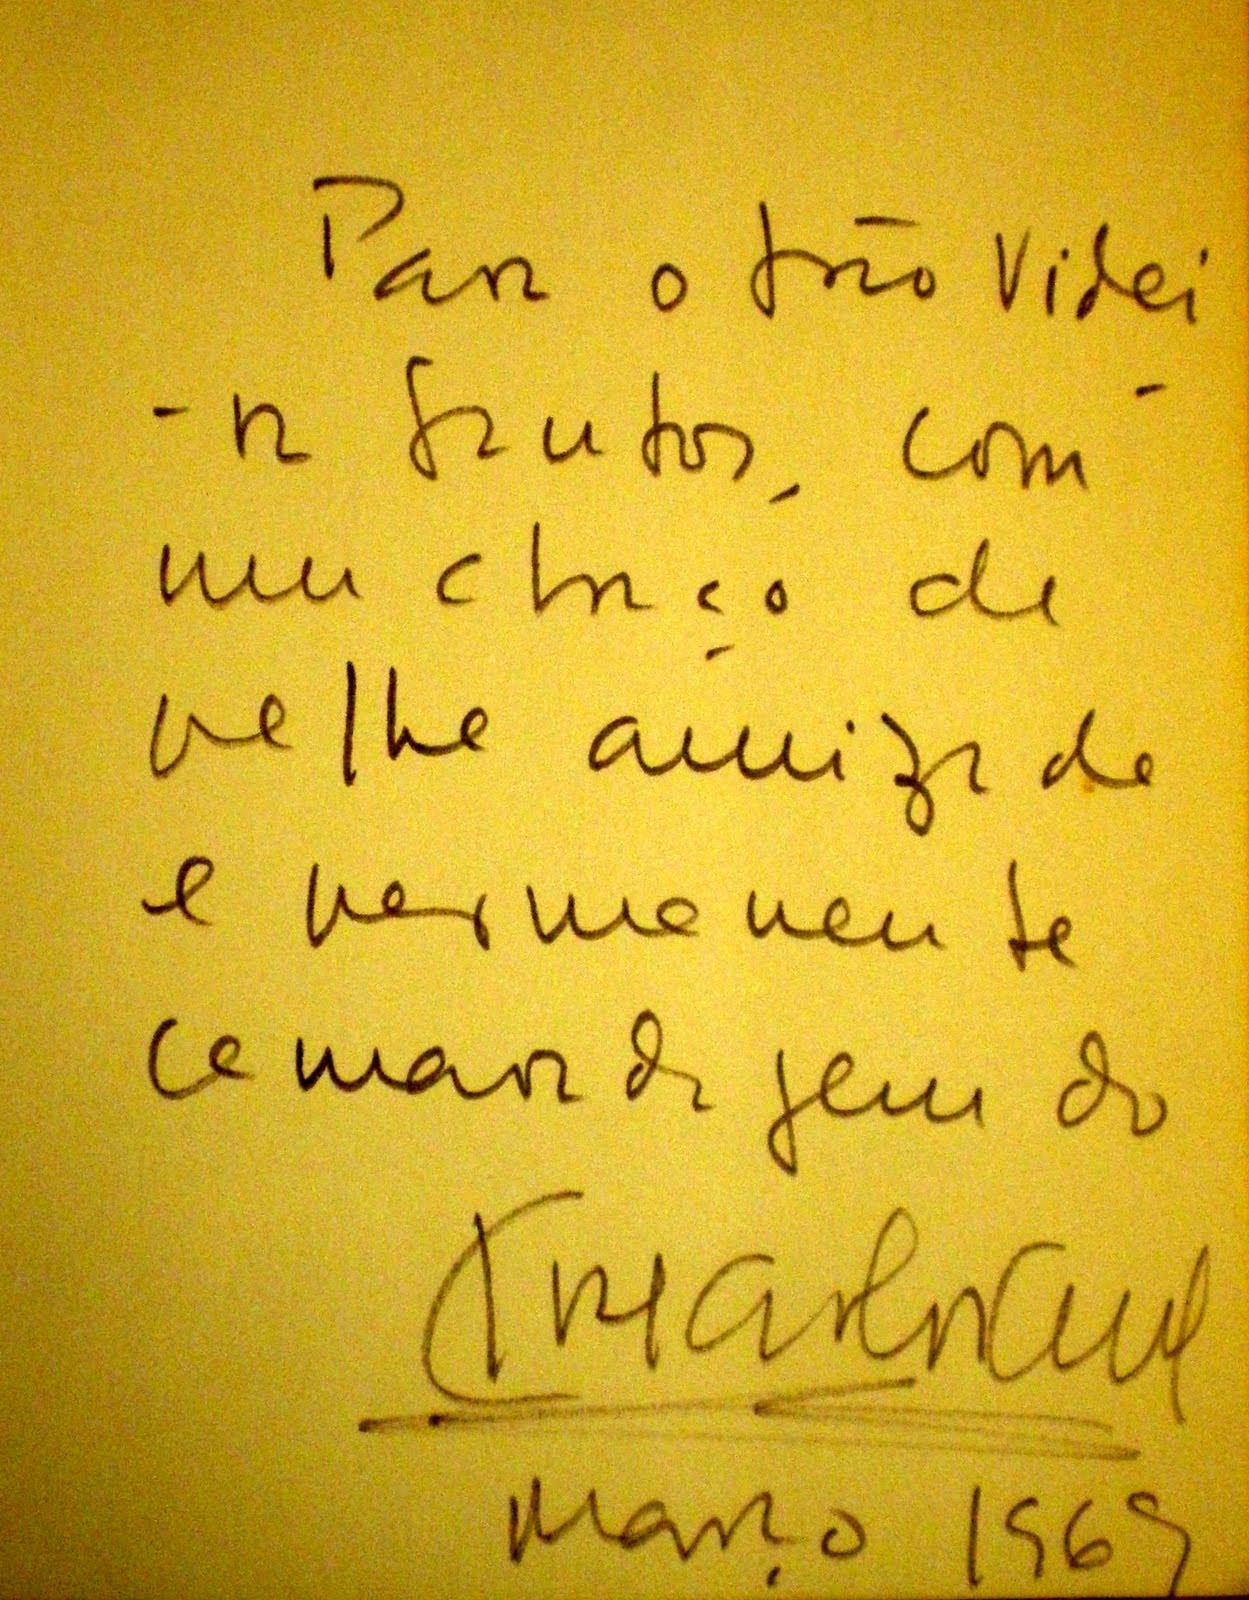 Para o João Videi
-ra Santos, com
um abraço de
velha amizade
e permanente
camaradagem do
Março 1969